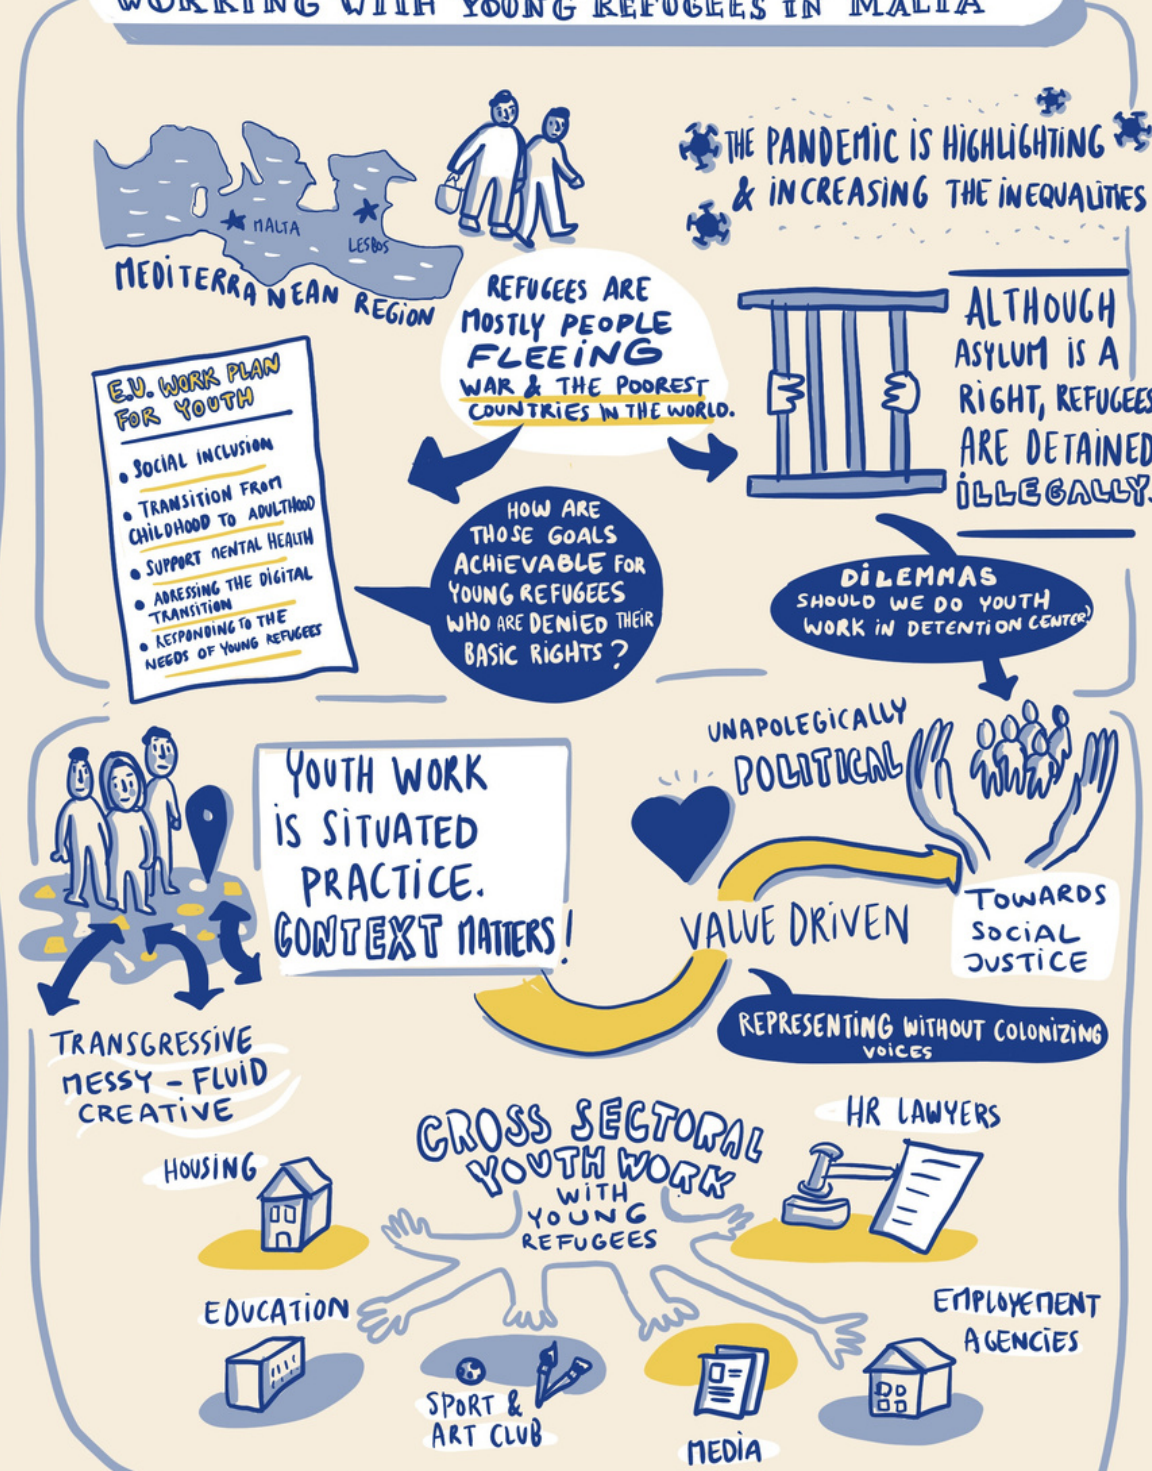 WORKING WITH YOUNG REFUGEES IN MALTA
MALTA
LESBOS
MEDITERRANEAN REGION
THE PANDEMIC IS HIGHLIGHTING
& INCREASING THE INEQUALITIES
REFUGEES ARE
MOSTLY PEOPLE
FLEEING
WAR & THE POOREST
COUNTRIES IN THE WORLD.
ALTHOUGH
ASYLUM IS A
RIGHT, REFUGEES
ARE DETAINED
ILLEGALLY.
E.U. WORK PLAN
FOR YOUTH
• SOCIAL INCLUSION
• TRANSITION FROM
CHILDHOOD TO ADULTHOOD
• SUPPORT MENTAL HEALTH
• ADRESSING THE DIGITAL
TRANSITION
• RESPONDING TO THE
NEEDS OF YOUNG REFUGEES
HOW ARE
THOSE GOALS
ACHIEVABLE FOR
YOUNG REFUGEES
WHO ARE DENIED THEIR
BASIC RIGHTS?
DILEMMAS
SHOULD WE DO YOUTH
WORK IN DETENTION CENTER?
UNAPOLEGICALLY
POLITICAL
YOUTH WORK
IS SITUATED
PRACTICE.
CONTEXT MATTERS!
VALUE DRIVEN
TOWARDS
SOCIAL
JUSTICE
REPRESENTING WITHOUT COLONIZING
VOICES
TRANSGRESSIVE
MESSY - FLUID
CREATIVE
CROSS SECTORAL
YOUTH WORK
WITH
YOUNG
REFUGEES
HR LAWYERS
HOUSING
EDUCATION
EMPLOYEMENT
AGENCIES
SPORT &
ART CLUB
MEDIA